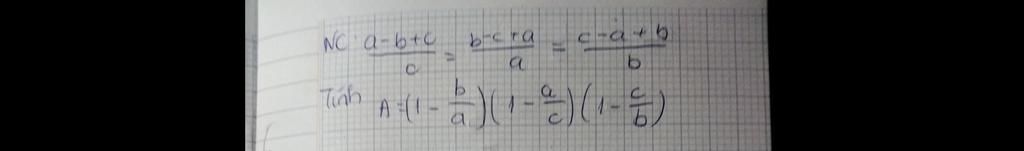 NC: a-b+c/c = b-c+a/a = c-a+b/b
Tính A=(1-b/a)(1-a/c)(1-c/b)